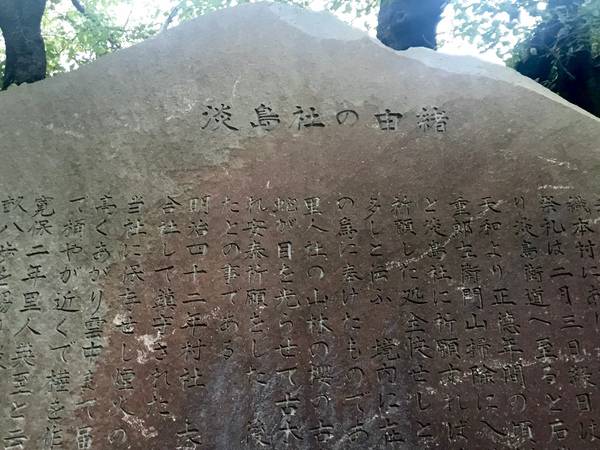 淡島社の由緒
織本村にあ
祭礼は二月三日縁日は
り淡島街道へ至ると后
天和より正徳年間の頃
重郎左衛門山掃除に入
と淡島社に祈願すれば
祈願した処全快せしと
多しと伝ふ 境内に在
の島に奉けたものであ
里人社の山林の櫻の古
蛇が目を光らせて古木
れ安泰祈願をした 後
たとの事である
明治四十二年村社 大
合社して鎮守された
当社に保存せし煙火の
高くあがり雲中まで届
て楯やが近くで権を作
寛保二年里人英至と云
八歩を